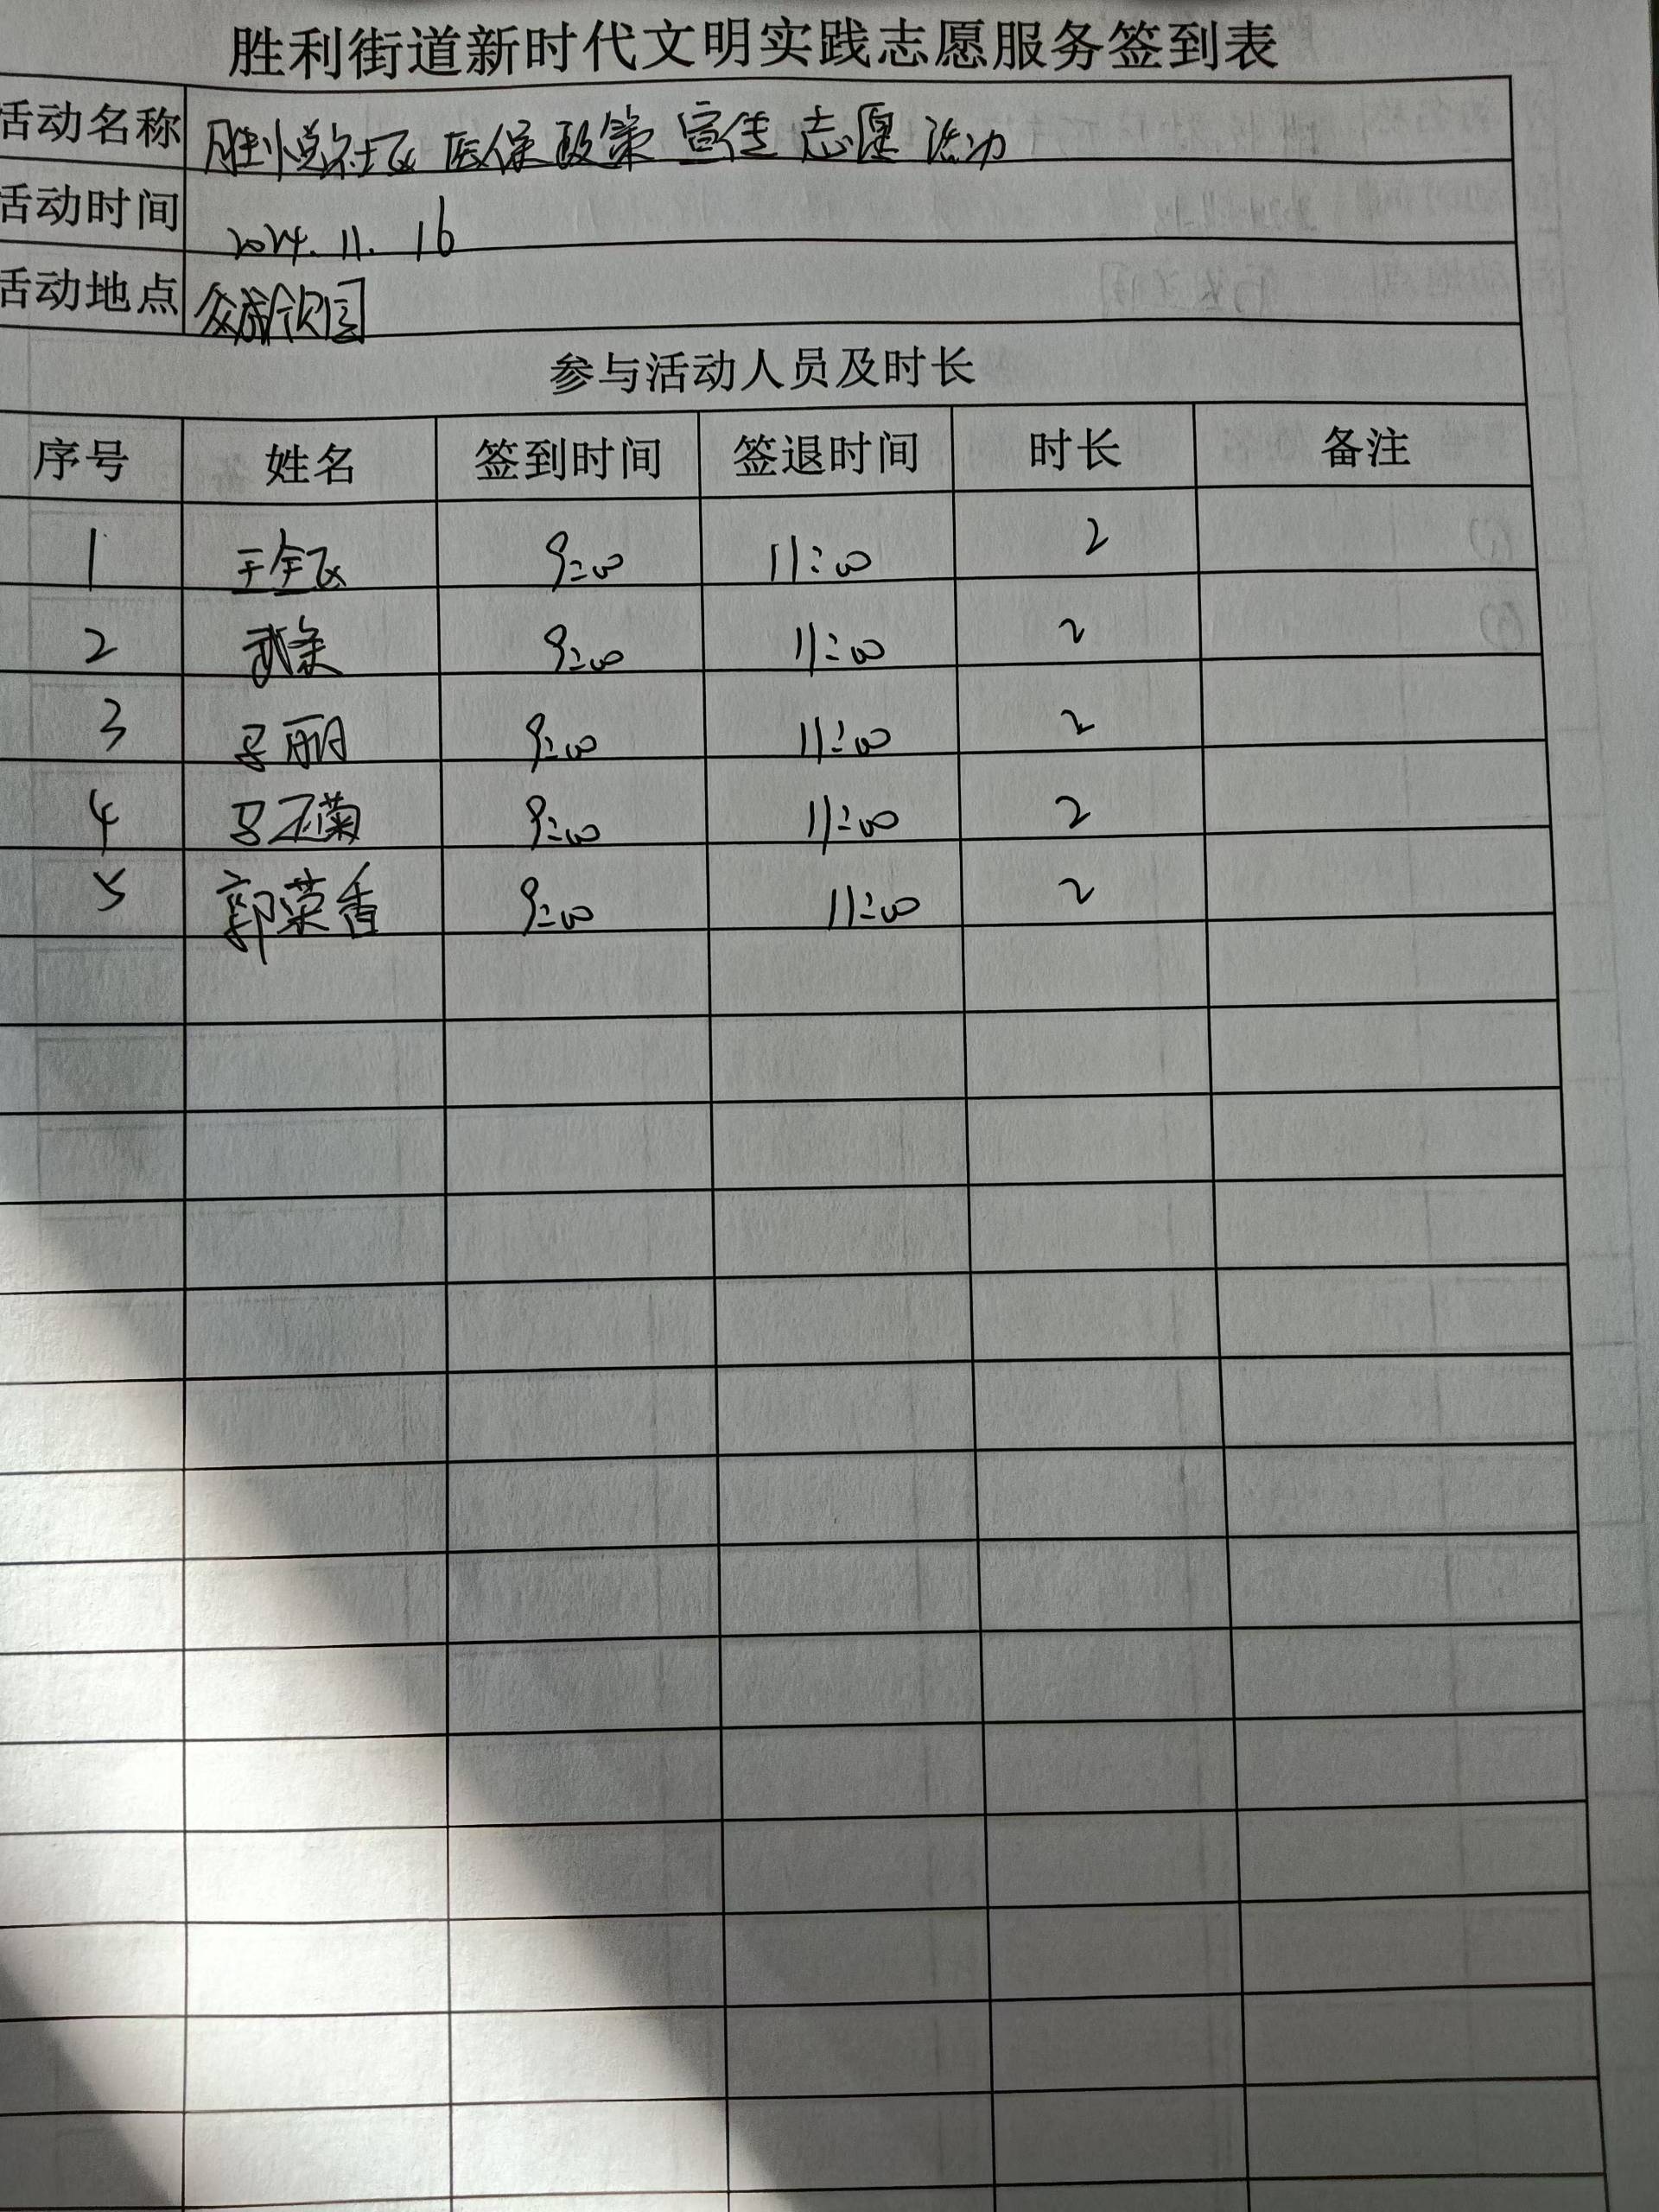 胜利街道新时代文明实践志愿服务签到表
活动名称 胜悦社区 医保政策宣传志愿活动
活动时间 2024.11.16
活动地点 众成 园
参与活动人员及时长
序号 姓名 签到时间 签退时间 时长 备注
1 王全飞 9:00 11:00 2
2 武 9:00 11:00 2
3 马丽 9:00 11:00 2
4 马玉菊 9:00 11:00 2
5 郭荣香 9:00 11:00 2